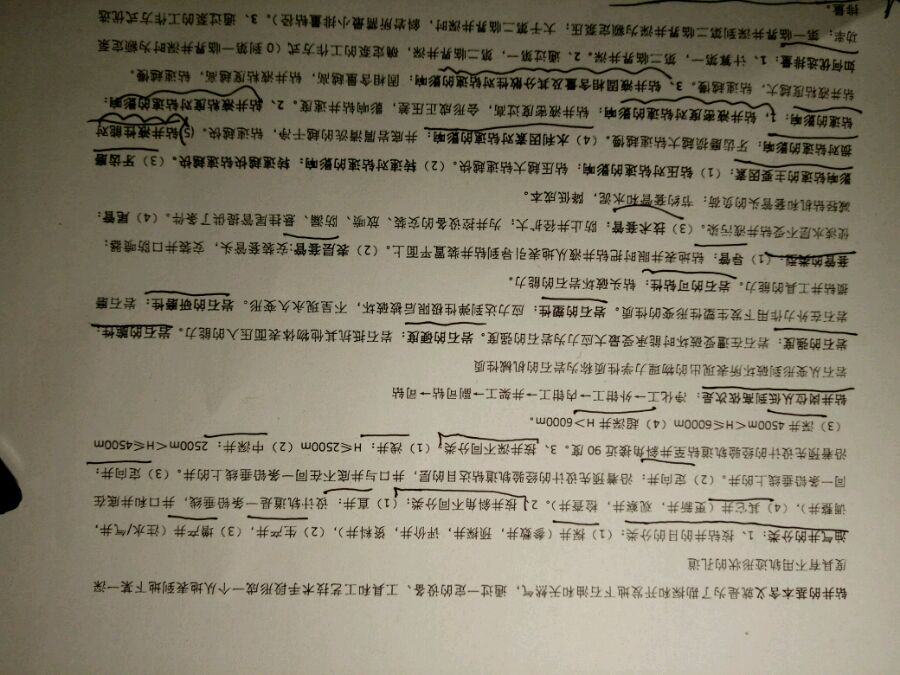 钻井的基本含义就是为了勘探和开发地下石油和天然气，通过一定的设备、工具和工艺技术手段形成一个从地表到地下某一深
度具有不用轨迹形状的孔道
油气井的分类：1、按钻井的目的分类：（1）探井（参数井，预探井，评价井，资料井），（2）生产井，（3）增产井（注水/气井，
调整井），（4）其它井（更新井，观察井，检查井）。2、按井斜角不同分类：（1）直井：设计轨道是一条铅垂线，井口和井底在
同一条铅垂线上的井。（2）定向井：沿着预先设计的经验轨道钻达目的层，井口与井底不在同一条铅垂线上的井。（3）定向井：
沿着预先设计的经验轨道钻至井斜角接近 90 度。3、按井深不同分类，（1）浅井：H≤2500m（2）中深井：2500m<H≤4500m
（3）深井 4500m<H≤6000m（4）超深井 H>6000m。
钻井岗位从低到高依次是：净化工→外钳工→内钳工→井架工→副司钻→司钻
岩石从变形到破坏所表现出的物理力学性质称为岩石的机械性质
岩石的强度：岩石在遭受破坏时能承受最大应力为岩石的强度。岩石的硬度：岩石抵抗其他物体表面压入的能力。岩石的脆性：
岩石在外力作用下发生塑性形变的性质。岩石的塑性：应力达到弹性极限后被破坏，不呈现永久变形。岩石的研磨性：岩石磨
损钻井工具的能力。岩石的可钻性：钻头破坏岩石的能力。
套管的类型：（1）导管：钻地表井眼时把钻井液从地表引导到钻井装置平面上。（2）表层套管:安装套管头，安装井口防喷器：
使淡水层不受钻井液污染。（3）技术套管：防止井径扩大；为井控设备的安装、放喷、防漏、悬挂尾管提供了条件。（4）尾管：
减轻钻机和套管头的负荷；节约套管和水泥，降低成本。
影响钻速的主要因素：（1）钻压对钻速的影响：钻压越大钻速越快。（2）转速对钻速的影响：转速越快钻速越快。（3）牙齿磨
损对钻速的影响：牙齿磨损越大钻速越慢。（4）水利因素对钻速的影响：井底岩屑清洗的越干净，钻速越快。（5）钻井液性能对
钻速的影响：1、钻井液密度对钻速的影响：钻井液密度过高，会形成正压差，影响钻井速度。2、钻井液粘度对钻速的影响：
钻井液粘度越大，钻速越慢。3、钻井液固相含量及其分散性对钻速的影响：固相含量越高，钻井液粘度越高，钻速越慢。
如何优选排量：1、计算第一，第二临界井深。2、通过第一，第二临界井深，确定泵的工作方式（0 到第一临界井深时为额定泵
功率；第一临界井深到第二临界井深为额定泵压；大于第二临界井深时，携岩所需最小排量钻径）。3、通过泵的工作方式优选
排量。